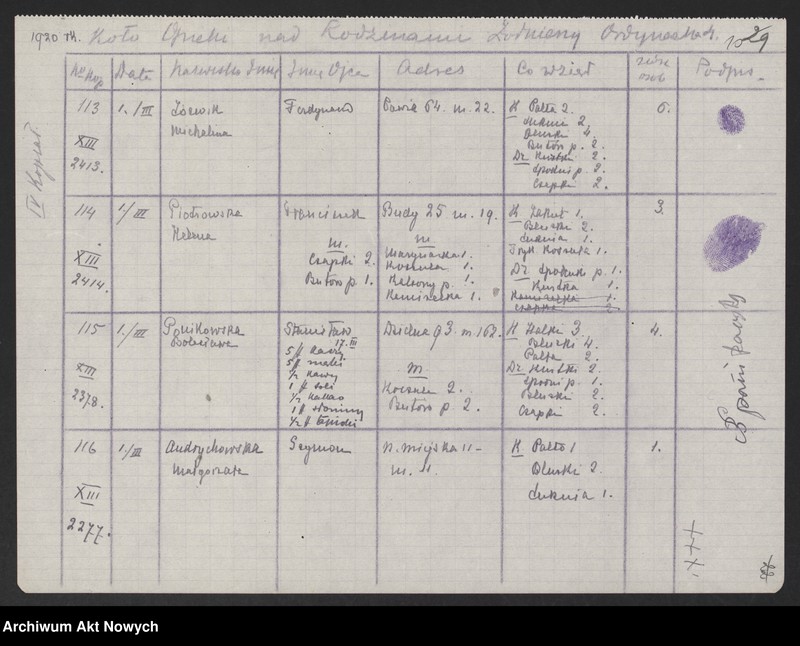 1920 r. Koło Opieki nad Rodzinami Żołnierzy Ordynacka 1029
IV Kyriał
Data Nazwisko Imię Imię Ojca Adres Co wziął osób Podpis
113 1./III Michalina Ferdynand Pawia 64. m. 22. K Palta 2. 6.
Suknie 2.
Bluzki 4.
Butów p. 2.
Dr. 2.
XIII
2413.
Spodni p. 2.
Czapki 2.
114 1./III Piotrowska Helena Franciszek Budy 25 m. 19. K Żakiet 1. 3.
Bluzki 2.
Suknia 1.
Koszula 1.
m.
Czapki 2.
Butów p. 1.
m
Marynarka 1.
Koszula 1.
Kalesony p. 1.
Kamizelka 1.
Dr. Spodenki p. 1.
Kurtka 1.
Kamizelka 1.
czapka 2
XIII
2414.
115 1./III Ponikowska Bolesława Stanisław Dzielna 93. m. 162. K Halki 3. 4.
Bluzki 4.
Palta 2.
17.III
5 f kaszy
5 f mąki
1/2 kawy
1 f soli
1/2 kakao
1 f słoniny
m
Koszule 2.
Butów p. 2.
Dr. 2.
Spodni p. 1.
Bluzki 2.
Czapki 2.
XIII
2378.
116 1./III Andrychowska Małgorzata Szymon N. Miejska 11 - m. 11. K Palto 1 1.
Bluzki 2.
Suknia 1.
XIII
2277.
Archiwum Akt Nowych